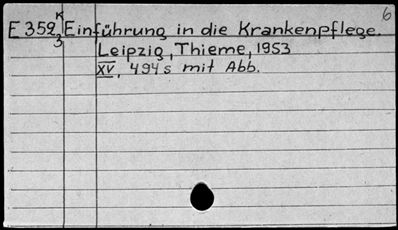 6
K
E 352, Einführung in die Krankenpflege.
3
Leipzig, Thieme, 1953
XV, 494 s mit Abb.